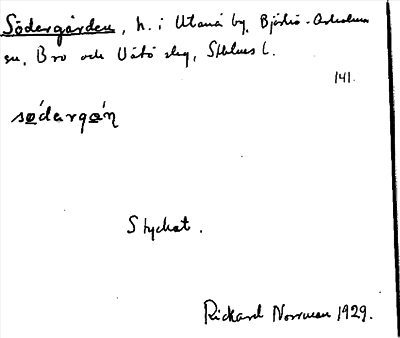 Södergården, h. i Utanå by, Björkö-Arholma
sn, Bro och Vätö skg, Sthlms l.
141.
sø´dærgɷ´ɳ
Styckat.
Rickard Norrman 1929.